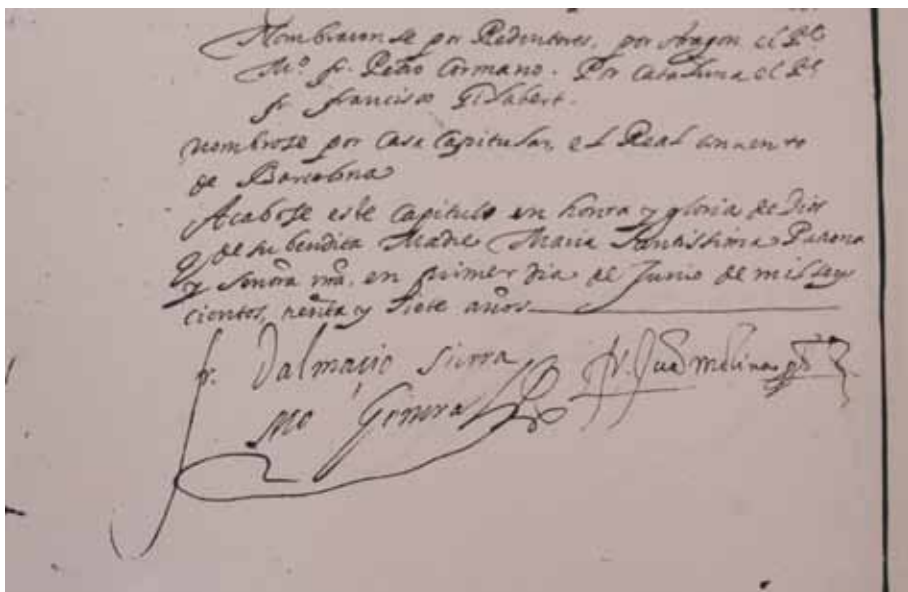 Nombraronse por Redentores, por Aragon el Pe.
Mº. fr. Pedro Cormano. Por Cataluna el Pe.
fr. francisco Gilabert.
Nombrose por Casa Capitular, el Real convento
de Barcelona
Acabose este Capitulo en honra y gloria de Dios
y de su bendita Madre Maria Santissima Patrona
y Senora nra. en primer dia de Junio de mil seys
cientos, y siete años
fr. Dalmaçio Sierra
Mº General
fr. Juan Molina